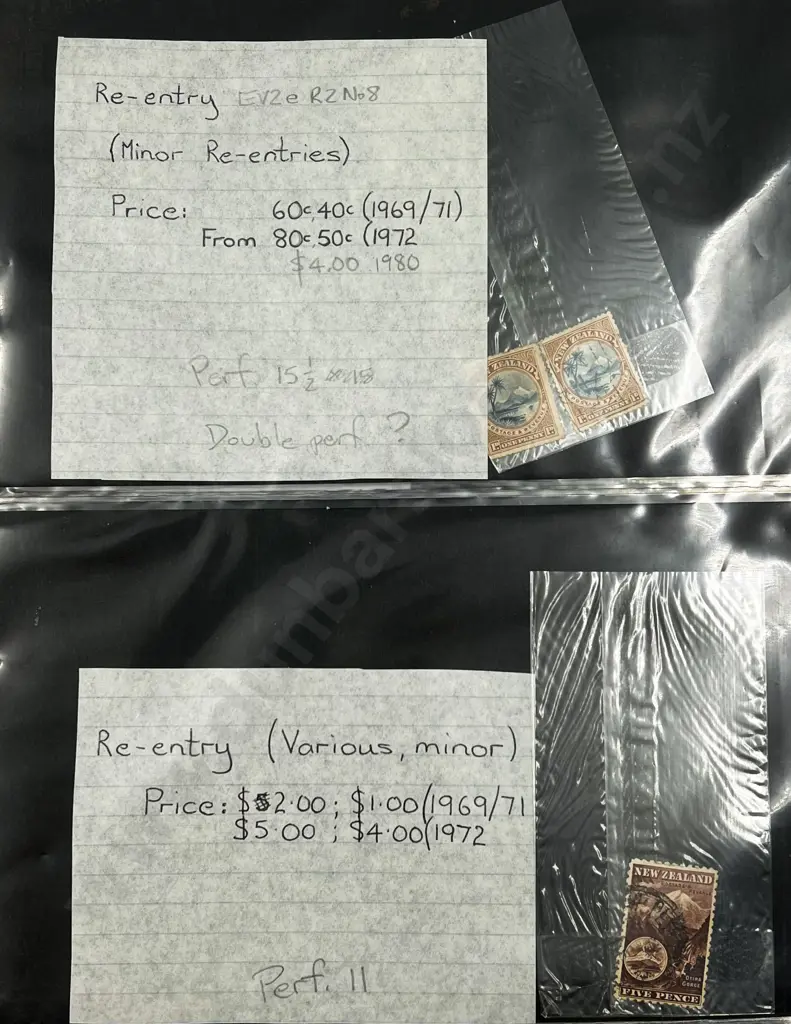 Re-entry EV2e R2 No8
(Minor Re-entries)
Price: 60c 40c (1969/71)
From 80c 50c (1972
$4.00 1980
Perf 15½
Double perf ?
NEW ZEALAND
ONE PENNY
ZEALAND
POSTAGE & REVENUE
ONE PENNY
Re-entry (Various, minor)
Price: $2.00 ; $1.00 (1969/71
$5.00 ; $4.00 (1972
Perf. 11
NEW ZEALAND
OTIRA
GORGE
FIVE PENCE